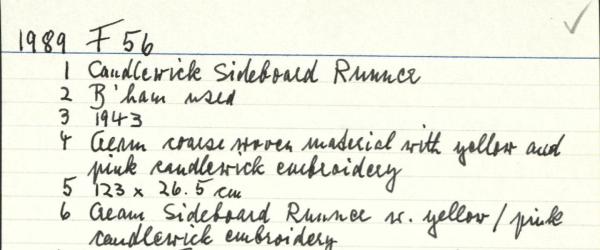 1989 F 56
1 Candlewick Sideboard Runner
2 B'ham used
3 1943
4 Cream coarse woven material with yellow and
pink candlewick embroidery
5 123 x 26.5 cm
6 Cream Sideboard Runner w. yellow / pink
candlewick embroidery